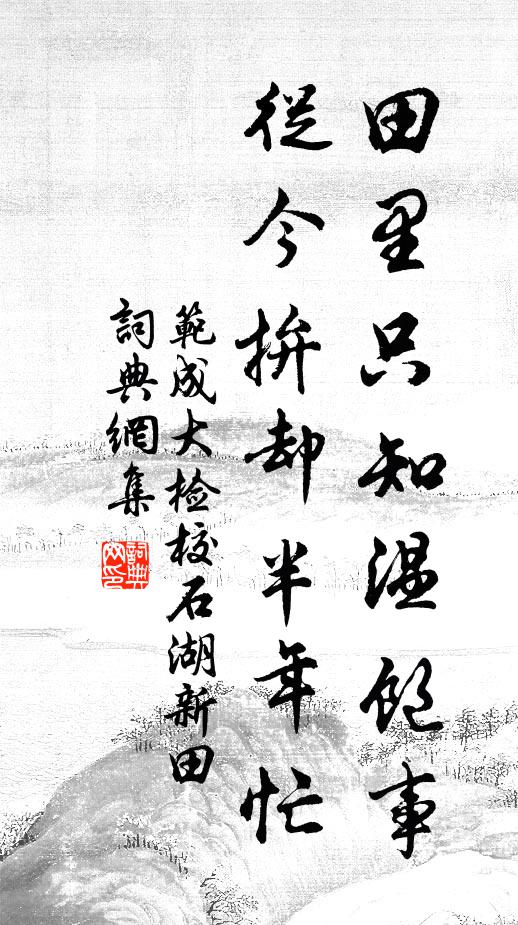 田里只知温飽事
從今拚却半年忙
範成大檢校石湖新田
詞典網集
詞典網印